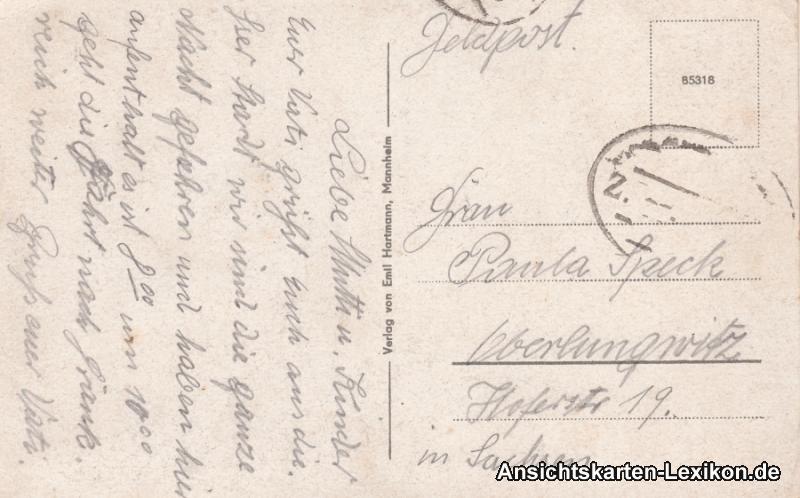 Liebe Mutti u. Kinder
Euer Vati grüßt euch aus die.
ser Stardt wir sind die ganze
Nacht gefahren und haben hier
aufenthalt es ist 8⁰⁰ um 10⁰⁰
geht die Fahrt nach Frank.
reich weiter Gruß euer Vati.
Verlag von Emil Hartmann, Mannheim
Feldpost.
85318
Frau
Paula Speck
Oberlungwitz
Hoferstr 19.
in Sachsen
Ansichtskarten-Lexikon.de